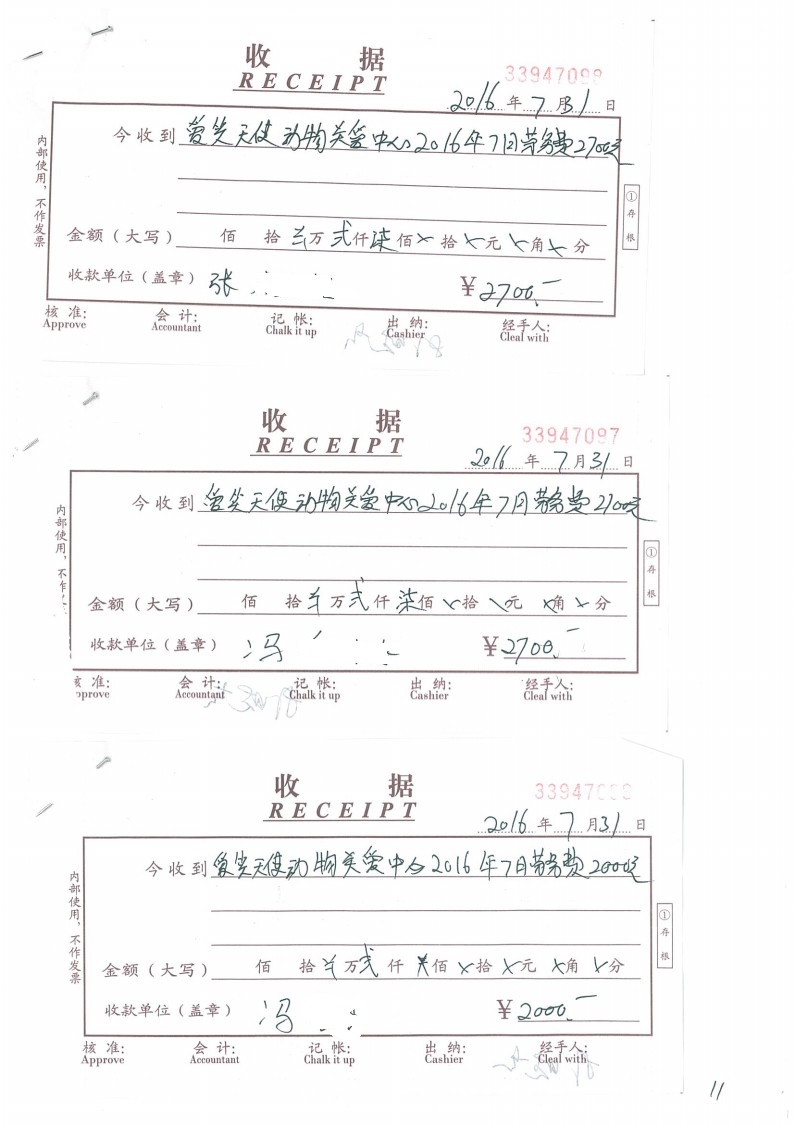 收 据
RECEIPT
3394709
2016 年 7 月 31 日
今收到 爱笑天使动物关爱中心2016年7月劳务费2700元
内部使用，不作发票
① 存根
金额（大写） 佰 拾 万 弍 仟 柒 佰 × 拾 × 元 × 角 × 分
收款单位（盖章） 张 ¥2700.—
核 准: 会 计: 记 帐: 出 纳: 经手人:
Approve Accountant Chalk it up Cashier Cleal with
收 据
RECEIPT
33947097
2016 年 7 月 31 日
今收到 爱笑天使动物关爱中心2016年7月劳务费2700元
内部使用，不作
① 存根
金额（大写） 佰 拾 万 弍 仟 柒 佰 × 拾 × 元 × 角 × 分
收款单位（盖章） 冯 ¥2700.—
准: 会 计: 记 帐: 出 纳: 经手人:
pprove Accountant Chalk it up Cashier Cleal with
收 据
RECEIPT
33947
2016 年 7 月 31 日
今收到 爱笑天使动物关爱中心2016年7月劳务费2000元
内部使用，不作发票
① 存根
金额（大写） 佰 拾 万 弍 仟 × 佰 × 拾 × 元 × 角 × 分
收款单位（盖章） 冯 ¥2000.—
核 准: 会 计: 记 帐: 出 纳: 经手人:
Approve Accountant Chalk it up Cashier Cleal with
11